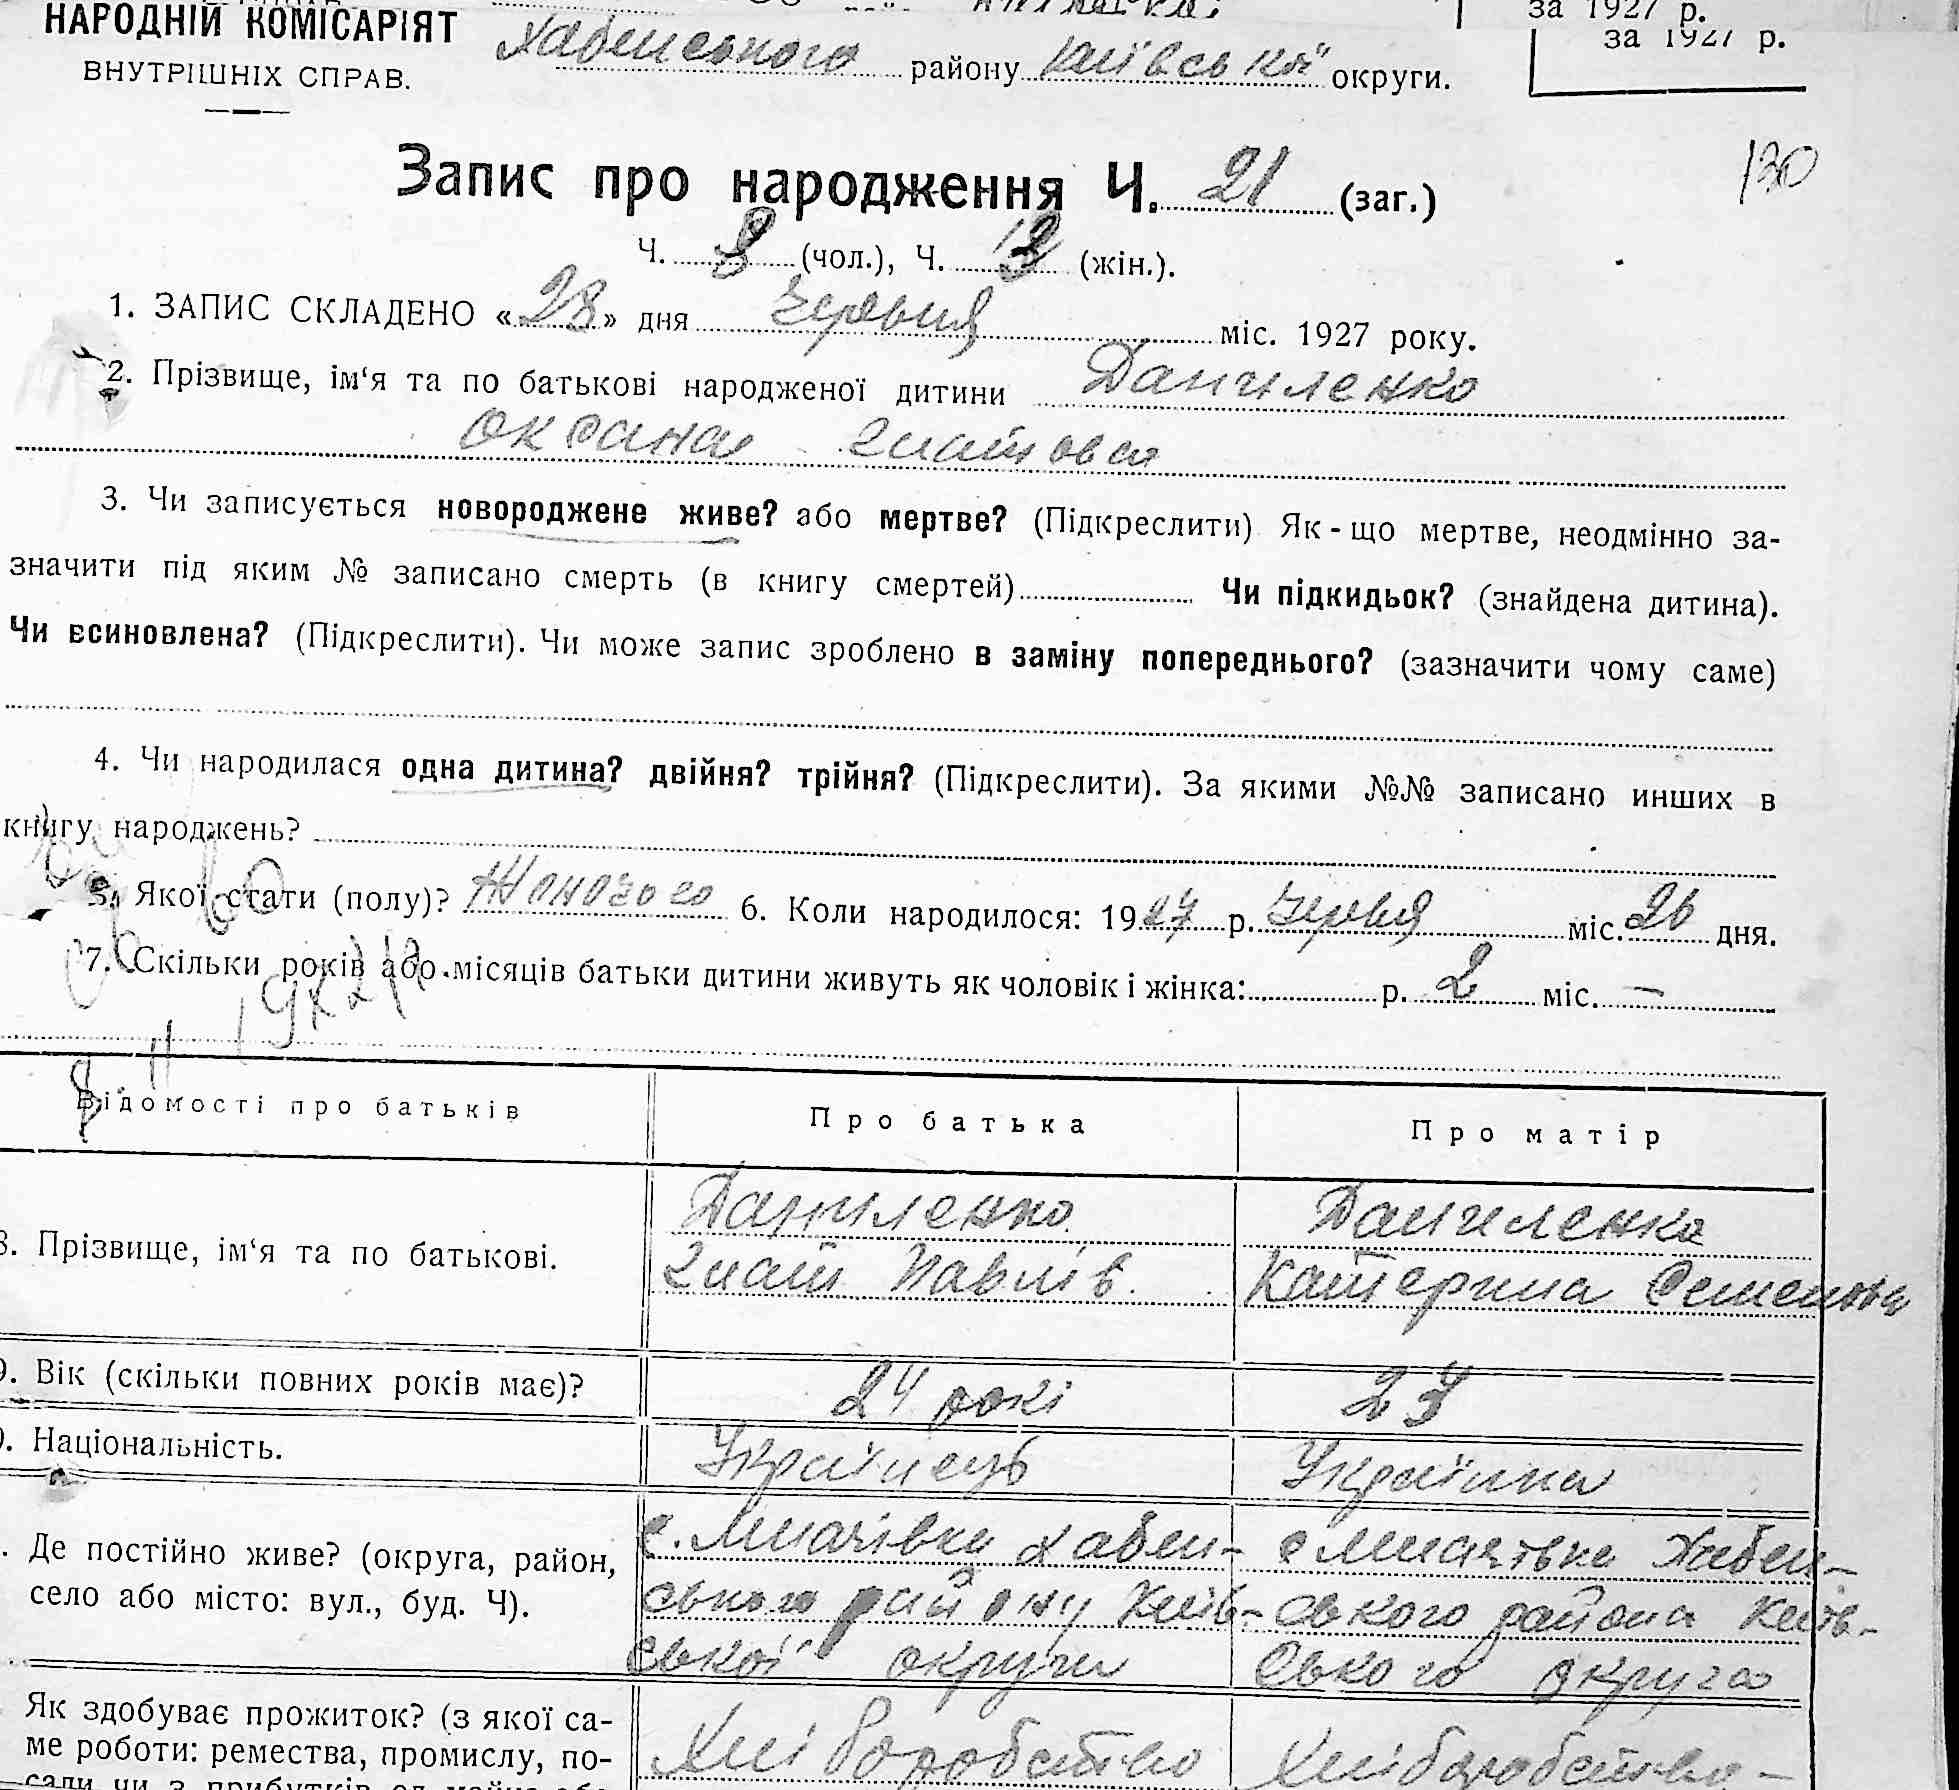 за 1927 р.
НАРОДНІЙ КОМІСАРІЯТ
ВНУТРІШНІХ СПРАВ.
Хабенського району Київської округи.
за 1927 р.
130
Запис про народження Ч. 21 (заг.)
Ч. 8 (чол.), Ч. 13 (жін.).
1. ЗАПИС СКЛАДЕНО «28» дня Червня міс. 1927 року.
2. Прізвище, ім‘я та по батькові народженої дитини Даниленко
Оксана Гнатовна
3. Чи записується новороджене живе? або мертве? (Підкреслити) Як-що мертве, неодмінно за-
значити під яким № записано смерть (в книгу смертей) Чи підкидьок? (знайдена дитина).
Чи всиновлена? (Підкреслити). Чи може запис зроблено в заміну попереднього? (зазначити чому саме)
4. Чи народилася одна дитина? двійня? трійня? (Підкреслити). За якими №№ записано инших в
книгу народжень?
5. Якої стати (полу)? Жоночого 6. Коли народилося: 1927 р. Червня міс. 26 дня.
7. Скільки років або місяців батьки дитини живуть як чоловік і жінка: р. 2 міс. —
Відомості про батьків Про батька Про матір
8. Прізвище, ім‘я та по батькові. Даниленко Даниленко
Гнат Павлів Катерина Семенова
9. Вік (скільки повних років має)? 24 рокі 24
0. Національність. Українець Українка
. Де постійно живе? (округа, район, с. Мнячівки Хабен- с Мнячівка Хабен-
село або місто: вул., буд. Ч). ського району Київ- ського района Київ-
ської округи ського округа
Як здобуває прожиток? (з якої са- Хліборобство Хліборобство -
ме роботи: ремества, промислу, по-